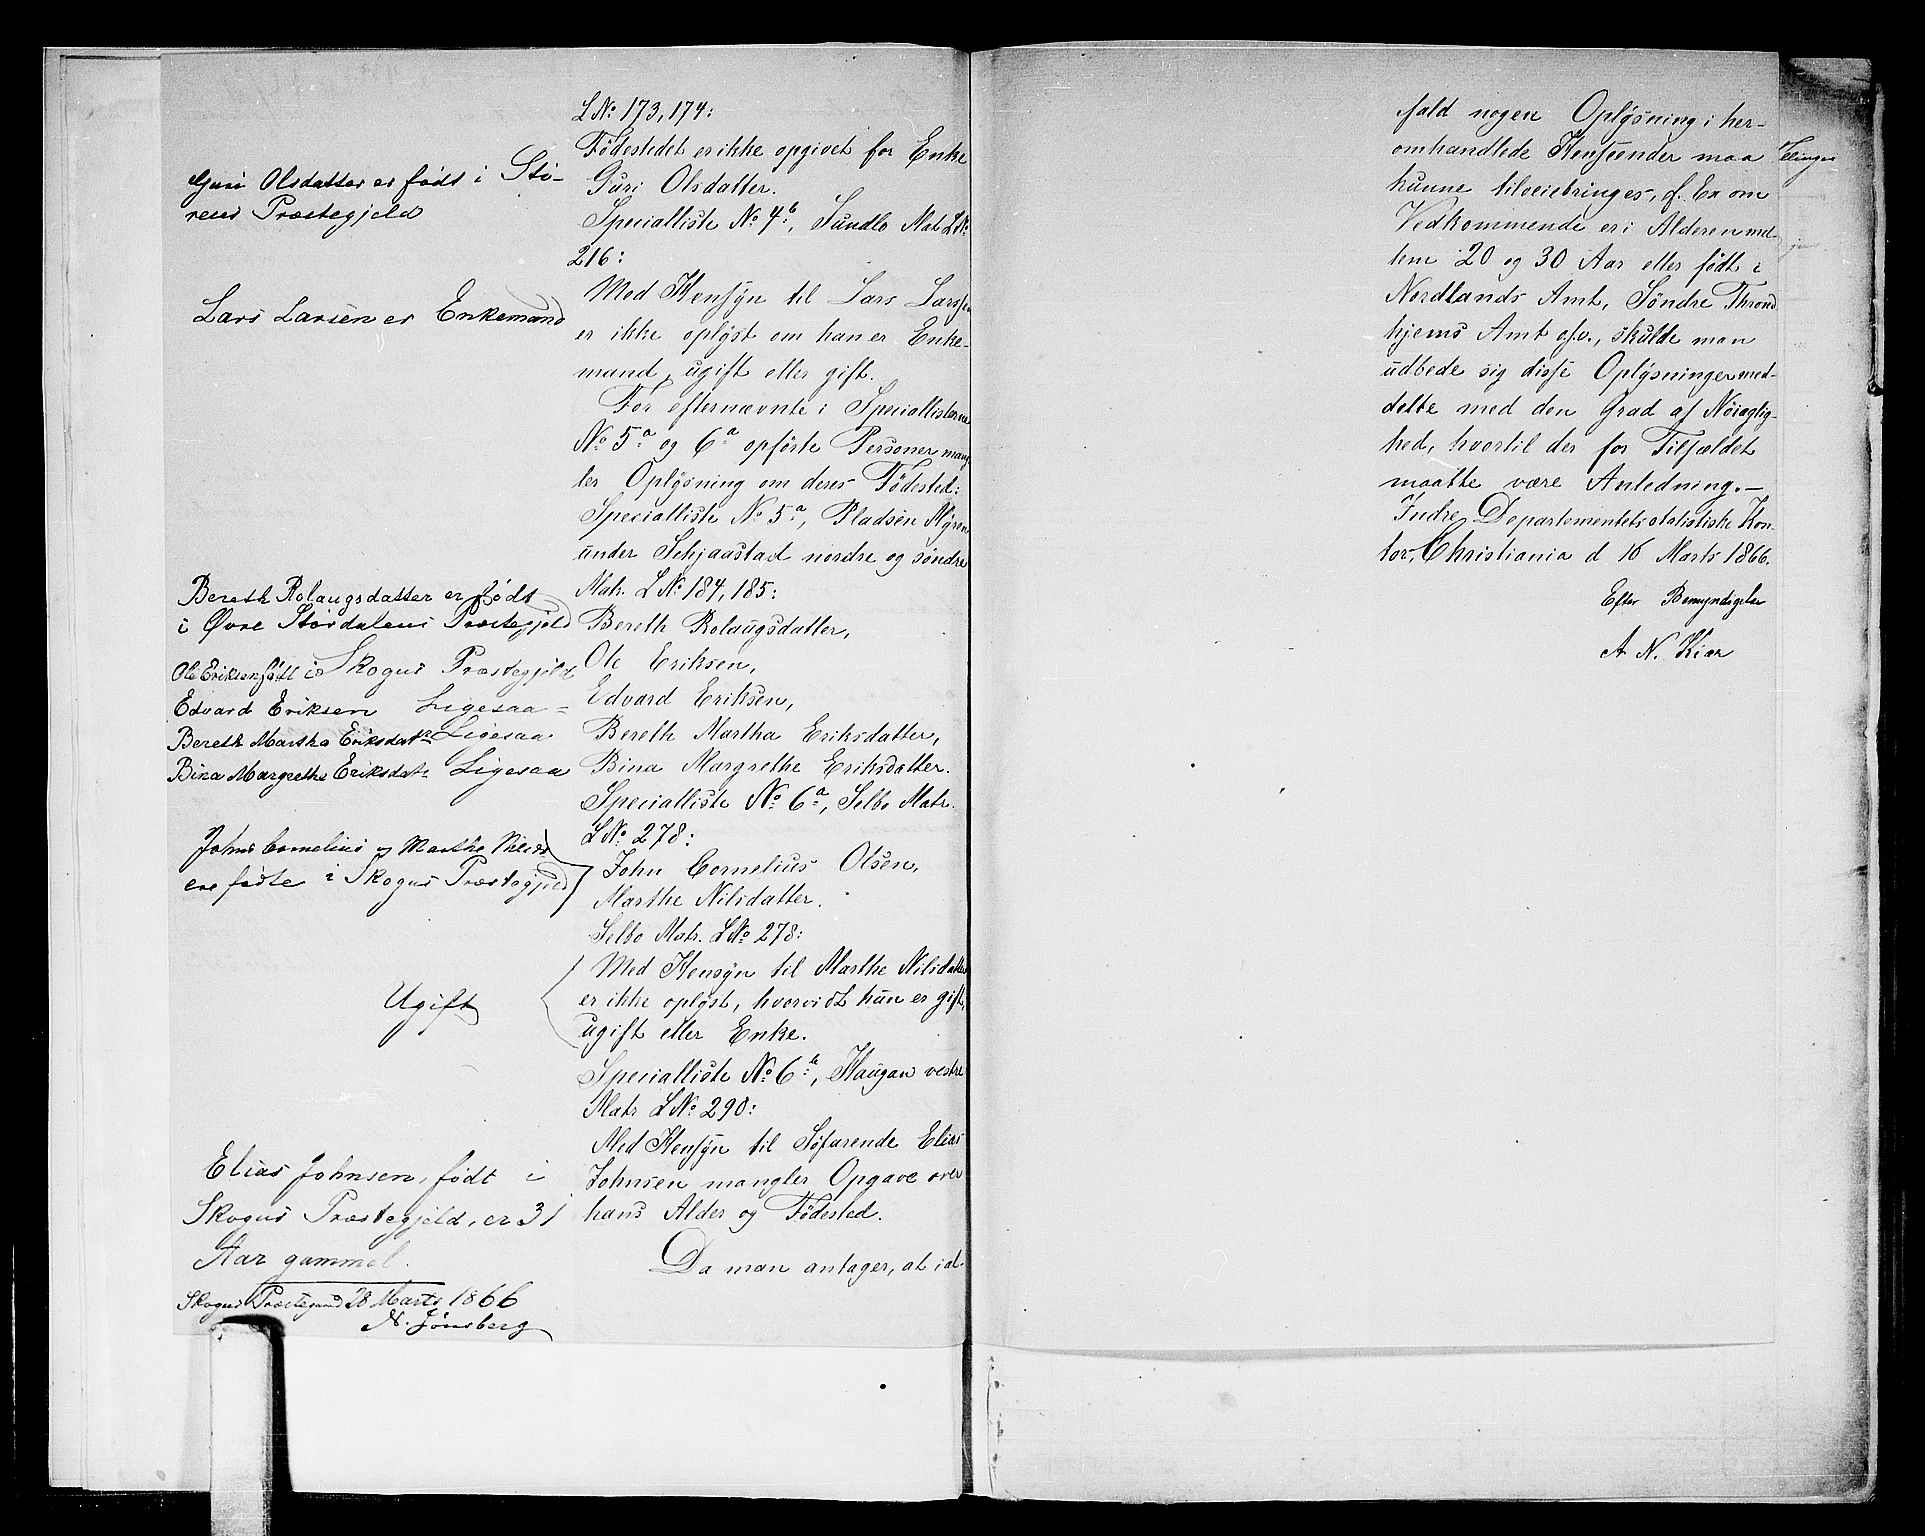 Guri Olsdatter er født i Stø-
rens Præstegjeld
Lars Larsen er Enkemand
Bereth Rolaugsdatter er født
i Øvre Størdalens Præstegjeld
Ole Eriksen født i Skogns Præstegjeld
Edvard Eriksen Ligesaa
Bereth Martha Eriksdatr Ligesaa
Bina Margrethe Eriksdatr Ligesaa
John Cornelius og Marthe Nilsdr
ere fødte i Skogns Præstegjeld
Ugift
Elias Johnsen, født i
Skogns Præstegjeld, er 31
Aar gammel.
Skogns Præstegaard 28 Marts 1866
N. Jönsberg
LNo 173, 174:
Födestedet er ikke opgivet for Enke
Guri Olsdatter.
Specialliste No 4b, Sundlo Mat LNo
216:
Med Hensyn til Lars Larssen
er ikke oplyst om han er Enke-
mand, ugift eller gift.
For efternævnte i Speciallisterne
No 5a og 6a opførte Personer mang
ler Oplysning om deres Födested:
Specialliste No 5a, Pladsen Myren
under Schjaastad nordre og søndre
Matr. LNo 184, 185:
Bereth Rolaugsdatter,
Ole Eriksen,
Edvard Eriksen,
Bereth Martha Eriksdatter,
Bina Margrethe Eriksdatter.
Specialliste No 6a, Selbo Matr.
LNo 278:
John Cornelius Olsen,
Marthe Nilsdatter.
Selbo Matr. LNo 278:
Med Hensyn til Marthe Nilsdatter
er ikke oplyst, hvorvidt hun er gift,
ugift eller Enke.
Specialliste No 6b, Haugan vestre
Matr LNo 290:
Med Hensyn til Söfarende Elias
Johnsen mangler Opgave over
hans Alder og Födested.
Da man antager, at i al
fald nogen Oplysning i her-
omhandlede Henseender maa
kunne tilveiebringes, f. Ex om
Vedkommende er i Alderen mel-
lem 20 og 30 Aar eller født i
Nordlands Amt, Søndre Thrond
hjems Amt o.s.v., skulde man
udbede sig disse Oplysninger med-
delte med den Grad af Nöiaglig-
hed, hvortil der for Tilfældet
maatte være Anledning.—
Indre Departementets statistiske Kon-
tor, Christiania d 16 Marts 1866.
Efter Bemyndigelse
A. N. Kiær